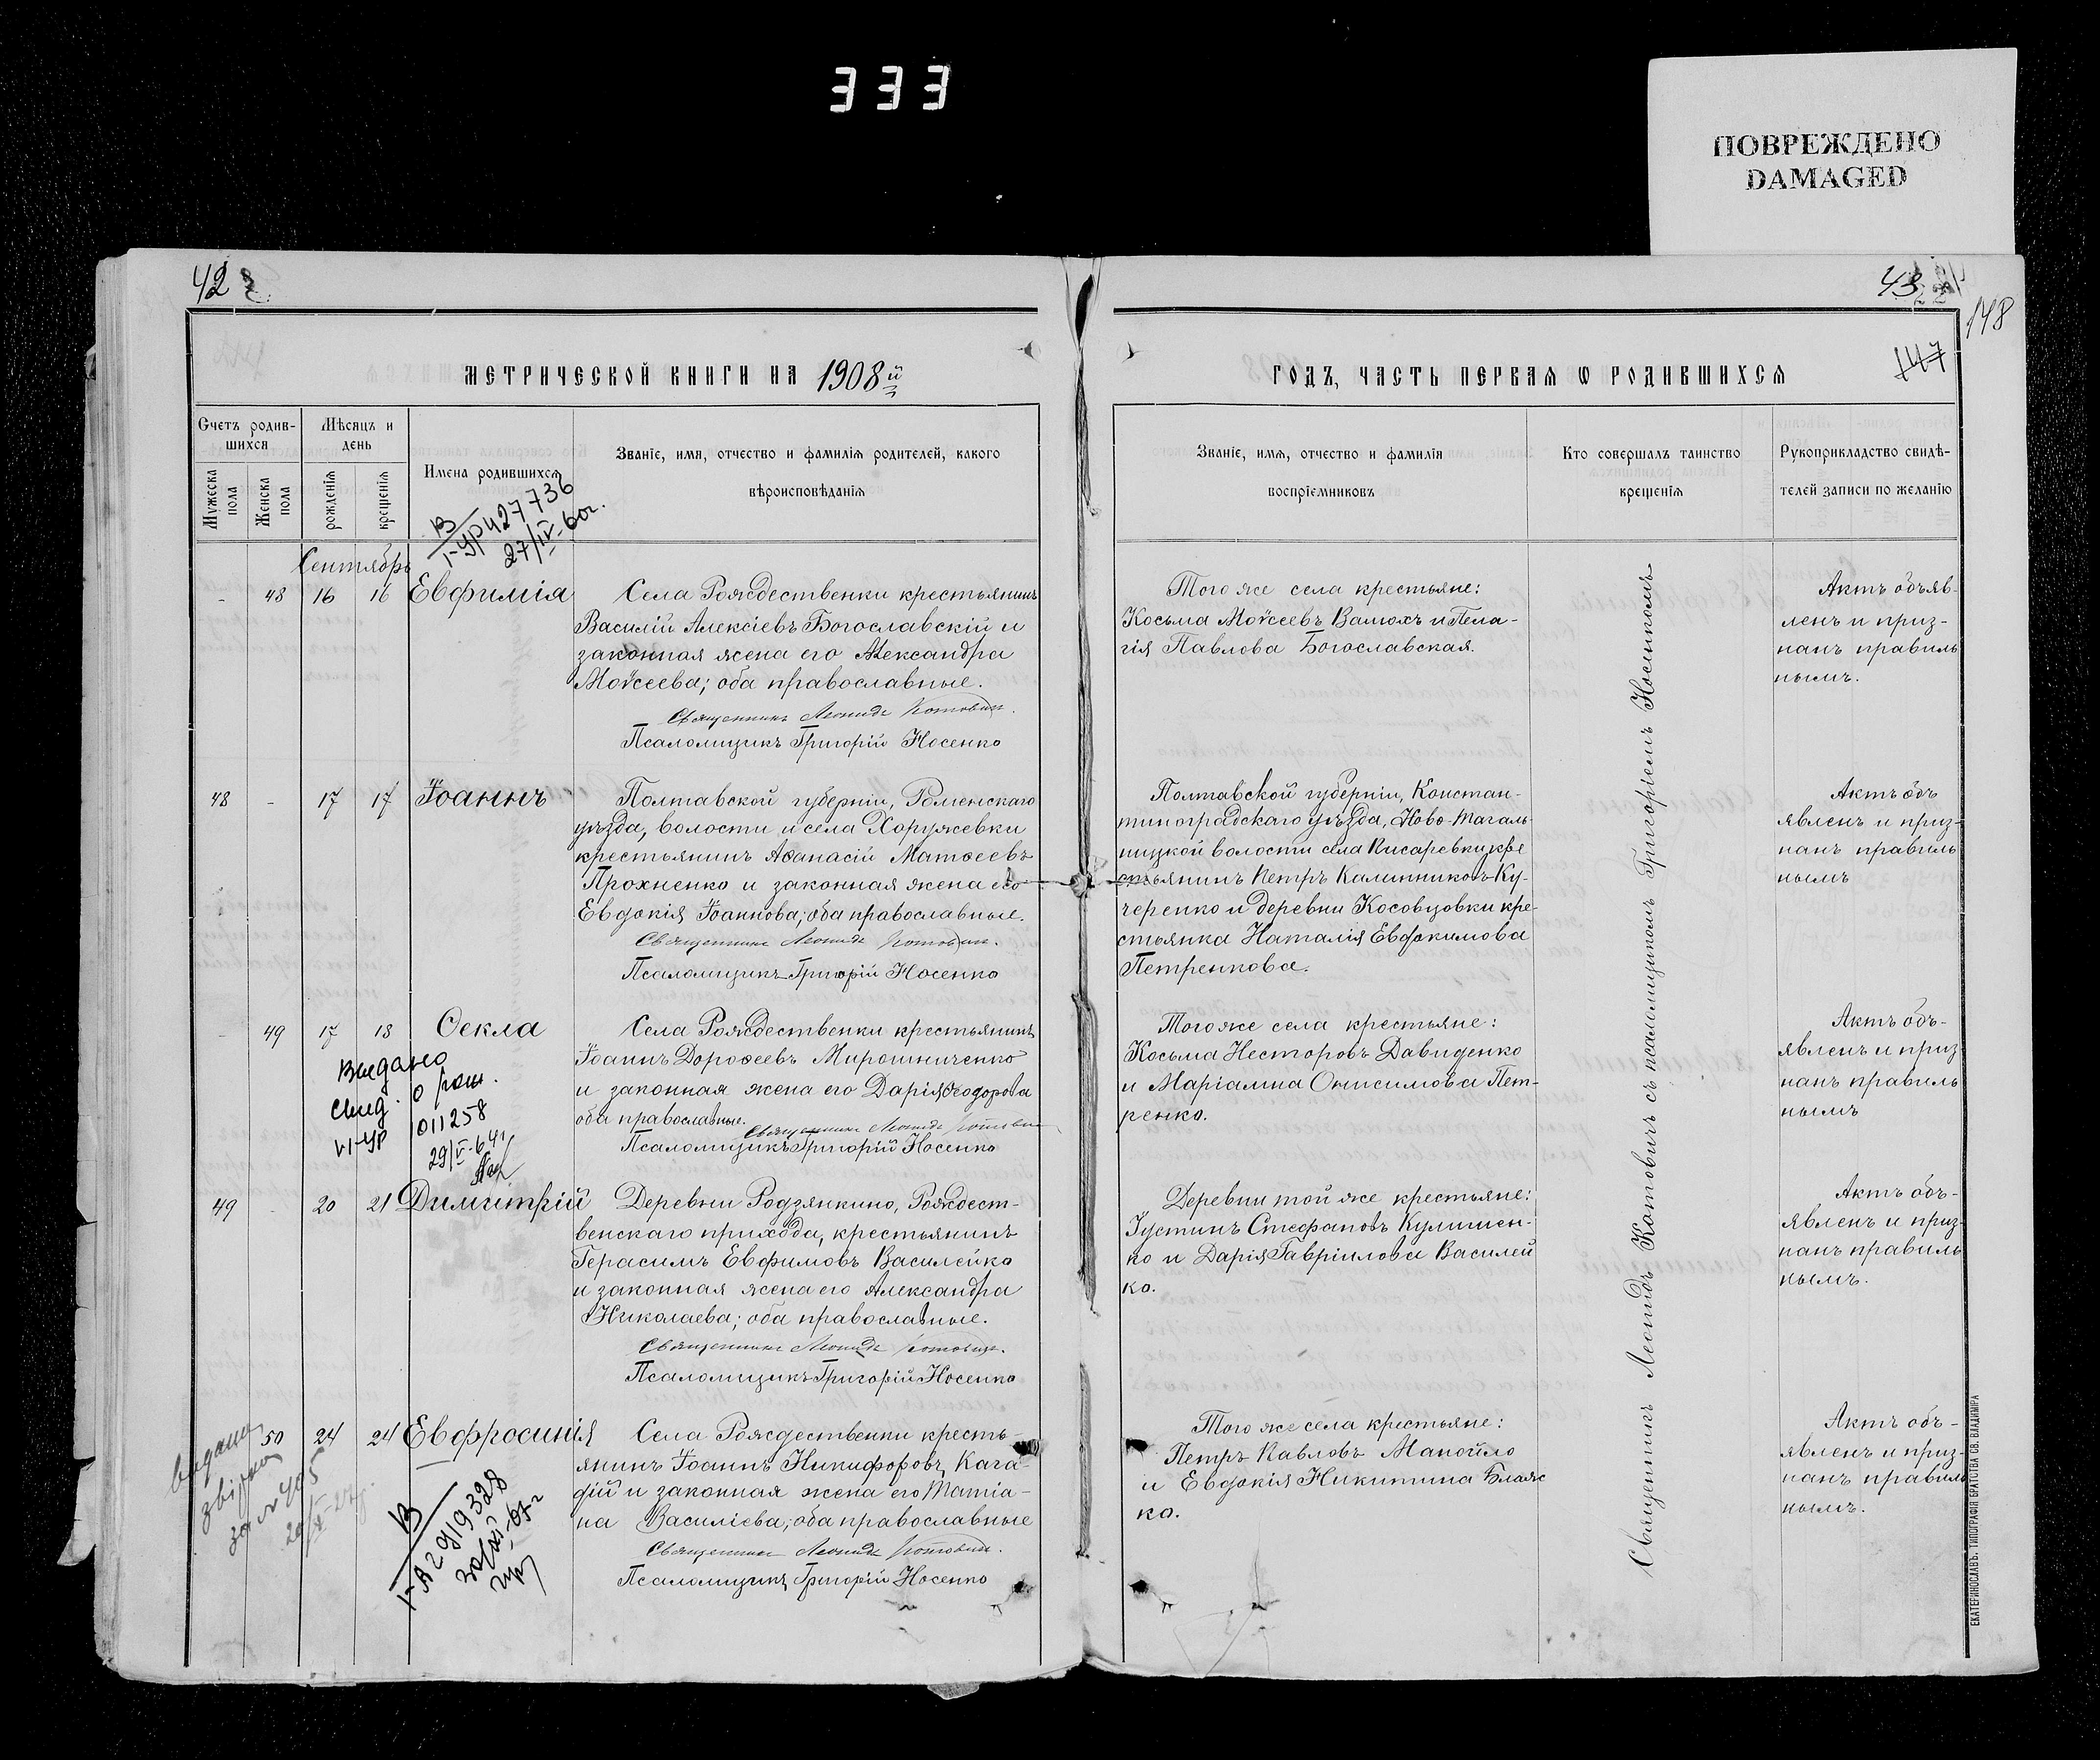 333
ПОВРЕЖДЕНО
DAMAGED
42
43
148
147
МЕТРИЧЕСКОЙ КНИГИ НА 1908й
ГОДЪ, ЧАСТЬ ПЕРВАЯ Ѡ РОДИВШИХСЯ
Счетъ родив-
шихся
Мѣсяцъ и
день
Мужеска
пола
Женска
пола
рожденія
крещенія
Имена родившихся
Званіе, имя, отчество и фамилія родителей, какого
вѣроисповѣданія
Званіе, имя, отчество и фамилія
воспріемниковъ
Кто совершалъ таинство
крещенія
Рукоприкладство свидѣ-
телей записи по желанію
В
I-УР 427736
27/IV-60г.
Сентябрь
- 48 16 16 Евфимія
Села Рождественки крестьянинъ
Василій Алексіевъ Богославскій и
законная жена его Александра
Моѵсеева; оба православные.
Священникъ Леонидъ Котовичъ.
Псаломщикъ Григорій Носенко
Того же села крестьяне:
Косьма Моѵсеевъ Валюхъ и Пела-
гія Павлова Богославская.
Актъ объяв-
ленъ и приз-
нанъ правиль
нымъ.
48 - 17 17 Іоаннъ
Полтавской губерніи, Роменскаго
уѣзда, волости и села Хоружевки
крестьянинъ Аѳанасій Матѳеевъ
Прохненко и законная жена его
Евдокія Іоаннова; оба православные.
Священникъ Леонидъ Котовичъ.
Псаломщикъ Григорій Носенко
Полтавской губерніи, Констан-
тиноградскаго уѣзда, Ново-Тагаль-
ницкой волости села Писаревки, кре
стьянинъ Петръ Калинниковъ Ку-
черенко и деревни Косовцовки кре-
стьянка Наталія Евдокимова
Петренкова.
Актъ объ
явленъ и приз-
нанъ правиль
нымъ
- 49 17 18 Ѳекла
Села Рождественки крестьянинъ
Іоаннъ Дороѳеевъ Мирошниченко
и законная жена его Дарія Ѳеодорова
оба православные.
Священникъ Леонидъ Котовичъ
Псаломщикъ Григорій Носенко
Того же села крестьяне:
Косьма Несторовъ Давиденко
и Маріамна Онисимова Пет-
ренко.
Актъ объ-
явленъ и приз
нанъ правиль
нымъ
Выдано
свид. о рож.
VI-УР 011258
29/V-64г
49 - 20 21 Димитрій
Деревни Родзянкино, Рождест-
венскаго прихода, крестьянинъ
Герасимъ Евфимовъ Василейко
и законная жена его Александра
Николаева; оба православные.
Священникъ Леонидъ Котовичъ.
Псаломщикъ Григорій Носенко
Деревни той же крестьяне:
Іустинъ Стефановъ Кулишен-
ко и Дарія Гавріилова Василей
ко.
Актъ объ-
явленъ и приз-
нанъ правиль
нымъ.
50 24 24 Евфросинія
Села Рождественки кресть-
янинъ Іоаннъ Никифоровъ Кага-
дій и законная жена его Татіа-
на Василіева; оба православные
Священникъ Леонидъ Котовичъ.
Псаломщикъ Григорій Носенко
Того же села крестьяне:
Петръ Павловъ Манойло
и Евдокія Никитина Блаж
ко.
Актъ объ-
явленъ и приз-
нанъ правиль
нымъ.
видано
звірка
за № 405
В
I-АГ 919328
Священникъ Леонидъ Котовичъ съ псаломщикомъ Григоріемъ Носенкомъ
ЕКАТЕРИНОСЛАВЪ. ТИПОГРАФІЯ БРАТСТВА СВ. ВЛАДИМІРА